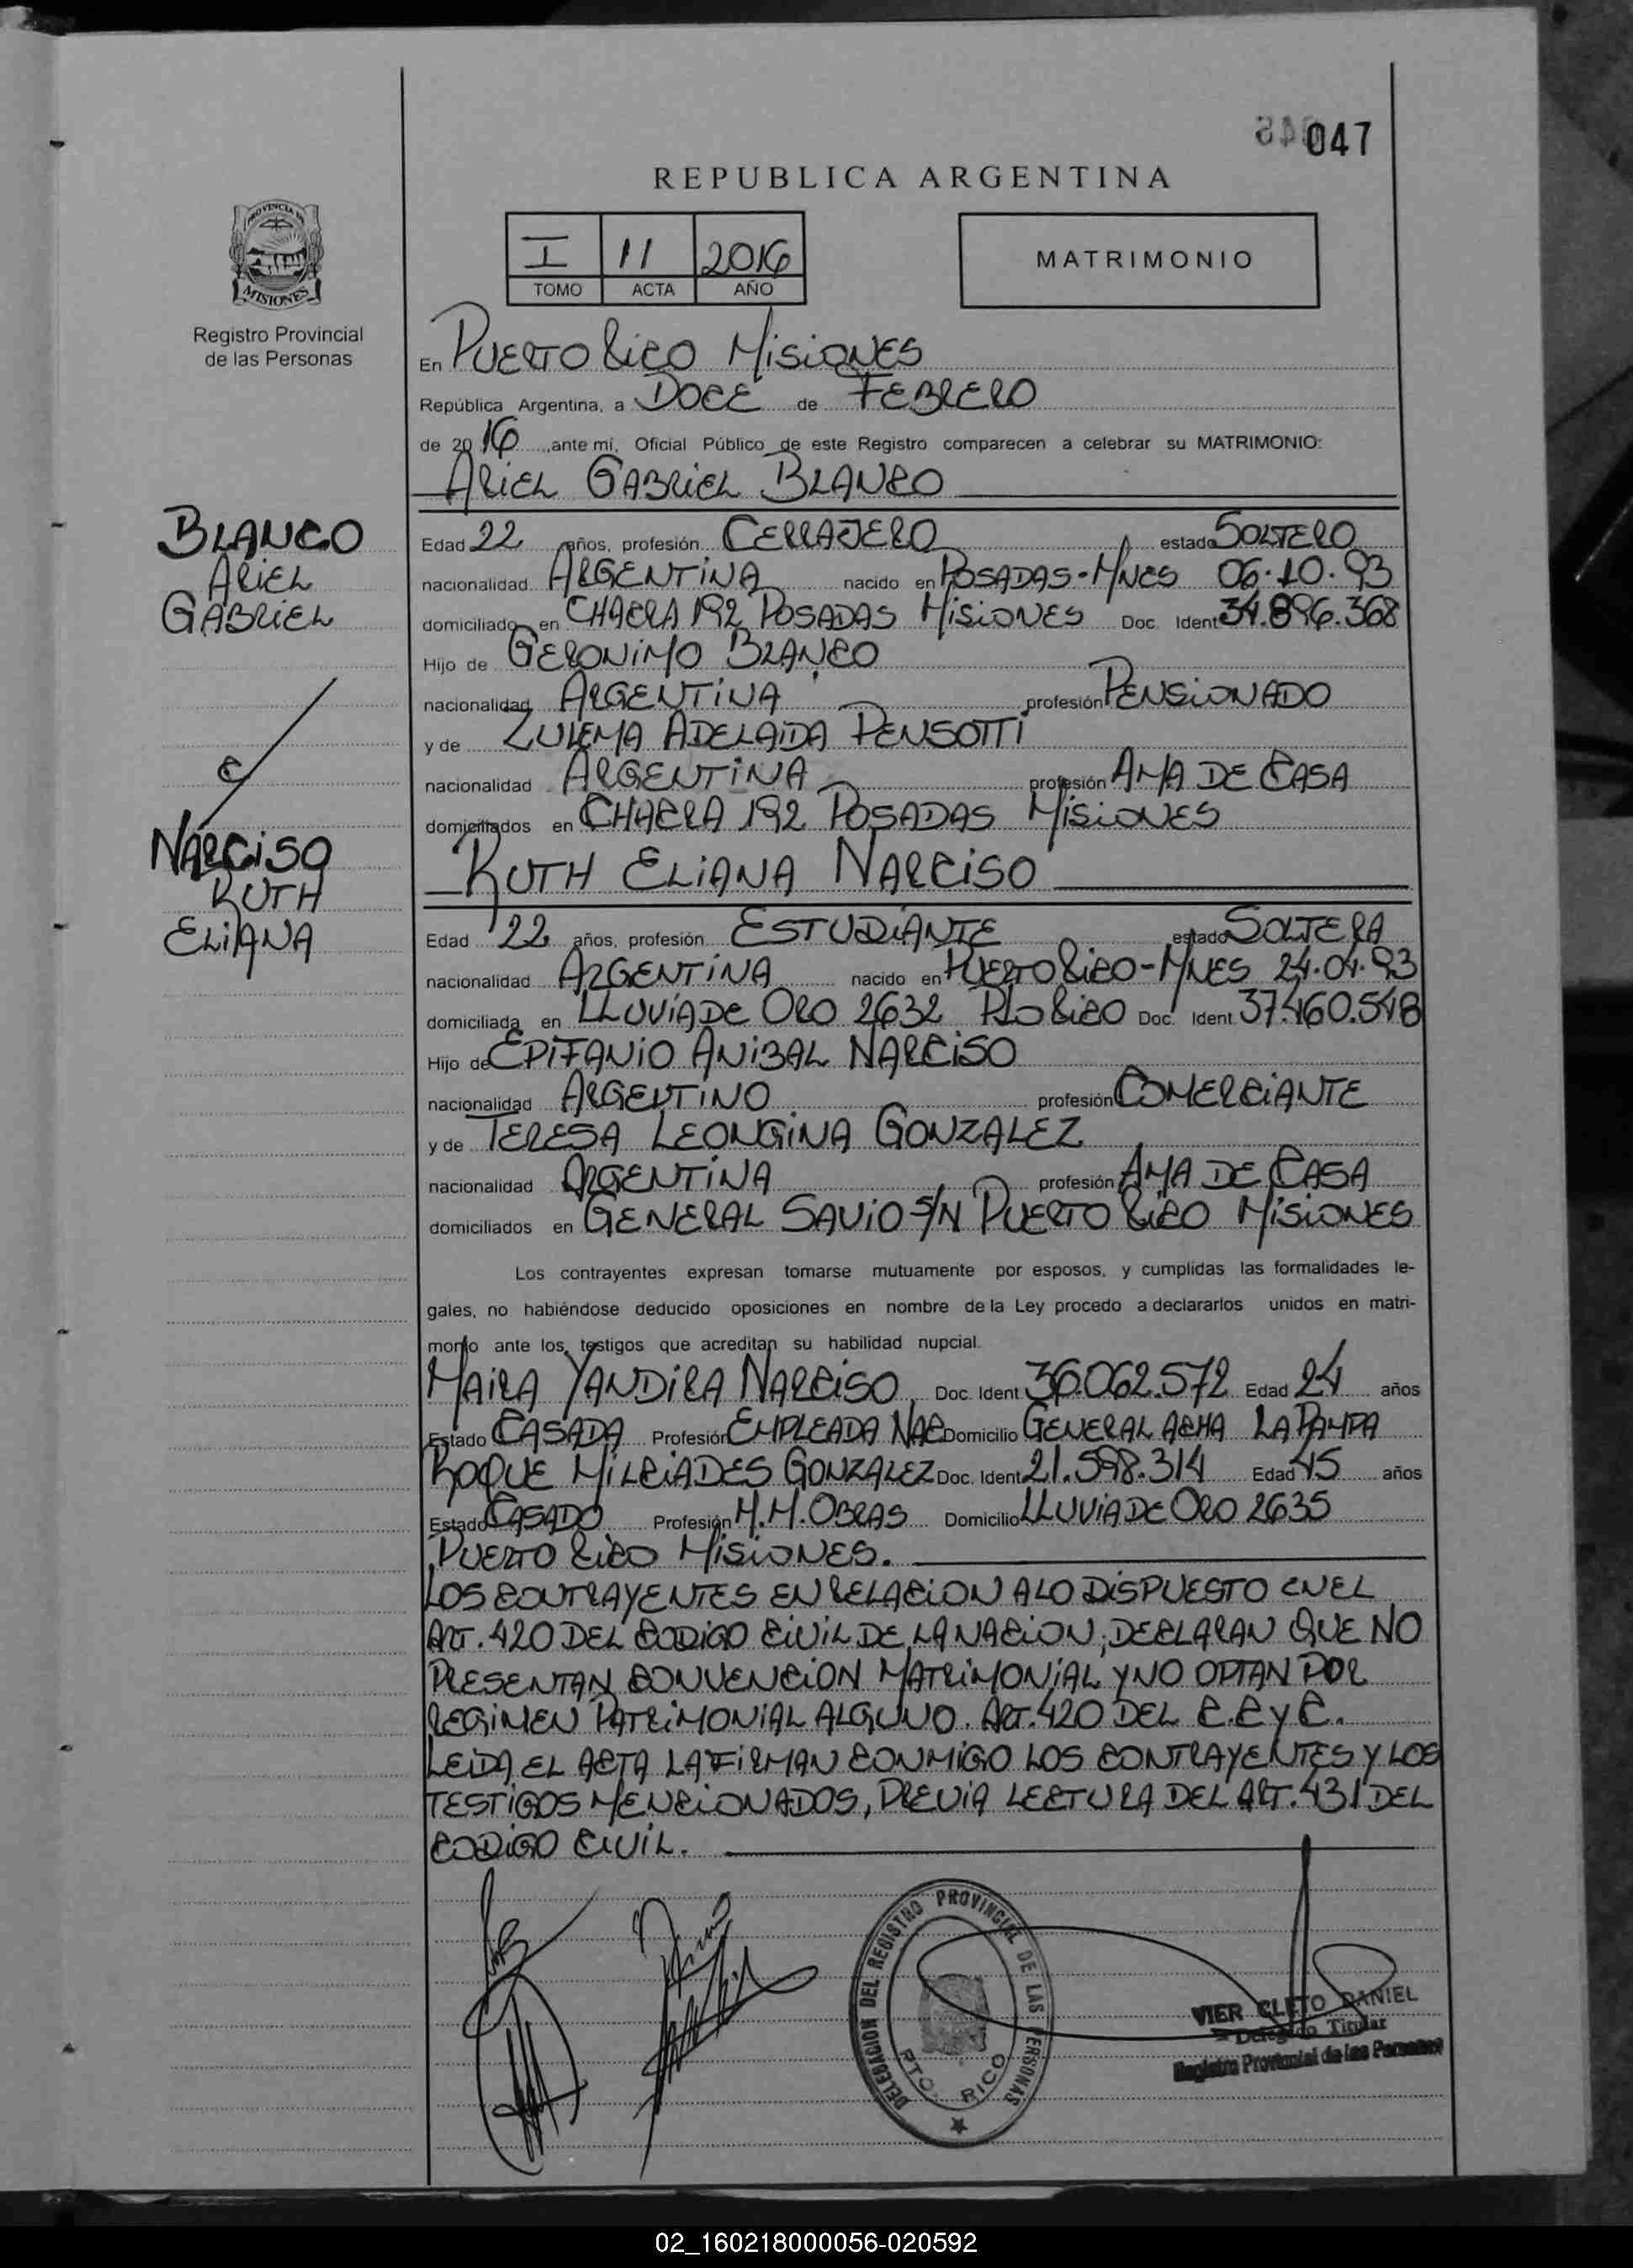 047
REPUBLICA ARGENTINA
I 11 2016
TOMO ACTA AÑO
MATRIMONIO
PROVINCIA DE
MISIONES
Registro Provincial
de las Personas
En PUERTO RICO MISIONES
República Argentina, a DOCE de FEBRERO
de 2016, ante mí, Oficial Público de este Registro comparecen a celebrar su MATRIMONIO:
ARIEL GABRIEL BLANCO
BLANCO
ARIEL
GABRIEL
Edad 22 años, profesión CERRAJERO estado SOLTERO
nacionalidad ARGENTINA nacido en POSADAS-MNES 06.10.93
domiciliado en CHACRA 192 POSADAS MISIONES Doc. Ident 34.896.368
Hijo de GERONIMO BLANCO
nacionalidad ARGENTINA profesión PENSIONADO
y de ZULEMA ADELAIDA PENSOTTI
nacionalidad ARGENTINA profesión AMA DE CASA
domiciliados en CHACRA 192 POSADAS MISIONES
C/
NARCISO
RUTH
ELIANA
RUTH ELIANA NARCISO
Edad 22 años, profesión ESTUDIANTE estado SOLTERA
nacionalidad ARGENTINA nacido en PUERTO RICO-MNES 24.04.93
domiciliada en LLUVIA DE ORO 2632 PTO RICO Doc. Ident. 37.460.548
Hijo de EPIFANIO ANIBAL NARCISO
nacionalidad ARGENTINO profesión COMERCIANTE
y de TERESA LEONGINA GONZALEZ
nacionalidad ARGENTINA profesión AMA DE CASA
domiciliados en GENERAL SAVIO S/N PUERTO RICO MISIONES
Los contrayentes expresan tomarse mutuamente por esposos, y cumplidas las formalidades le-
gales, no habiéndose deducido oposiciones en nombre de la Ley procedo a declararlos unidos en matri-
monio ante los testigos que acreditan su habilidad nupcial.
MAIRA YANDIRA NARCISO Doc. Ident 36.062.572 Edad 24 años
Estado CASADA Profesión EMPLEADA NAC Domicilio GENERAL ACHA LA PAMPA
ROQUE MILCIADES GONZALEZ Doc. Ident 21.598.314 Edad 45 años
Estado CASADO Profesión M.M.OBRAS Domicilio LLUVIA DE ORO 2635
PUERTO RICO MISIONES.
LOS CONTRAYENTES EN RELACION A LO DISPUESTO EN EL
ART. 420 DEL CODIGO CIVIL DE LA NACION, DECLARAN QUE NO
PRESENTAN CONVENCION MATRIMONIAL Y NO OPTAN POR
REGIMEN PATRIMONIAL ALGUNO. ART. 420 DEL C.C y C.
LEIDA EL ACTA LA FIRMAN CONMIGO LOS CONTRAYENTES Y LOS
TESTIGOS MENCIONADOS, PREVIA LECTURA DEL ART. 431 DEL
CODIGO CIVIL.
DELEGACION DEL REGISTRO PROVINCIAL DE LAS PERSONAS
PTO. RICO
VIER CLETO DANIEL
Delegado Titular
Registro Provincial de las Personas
02_160218000056-020592